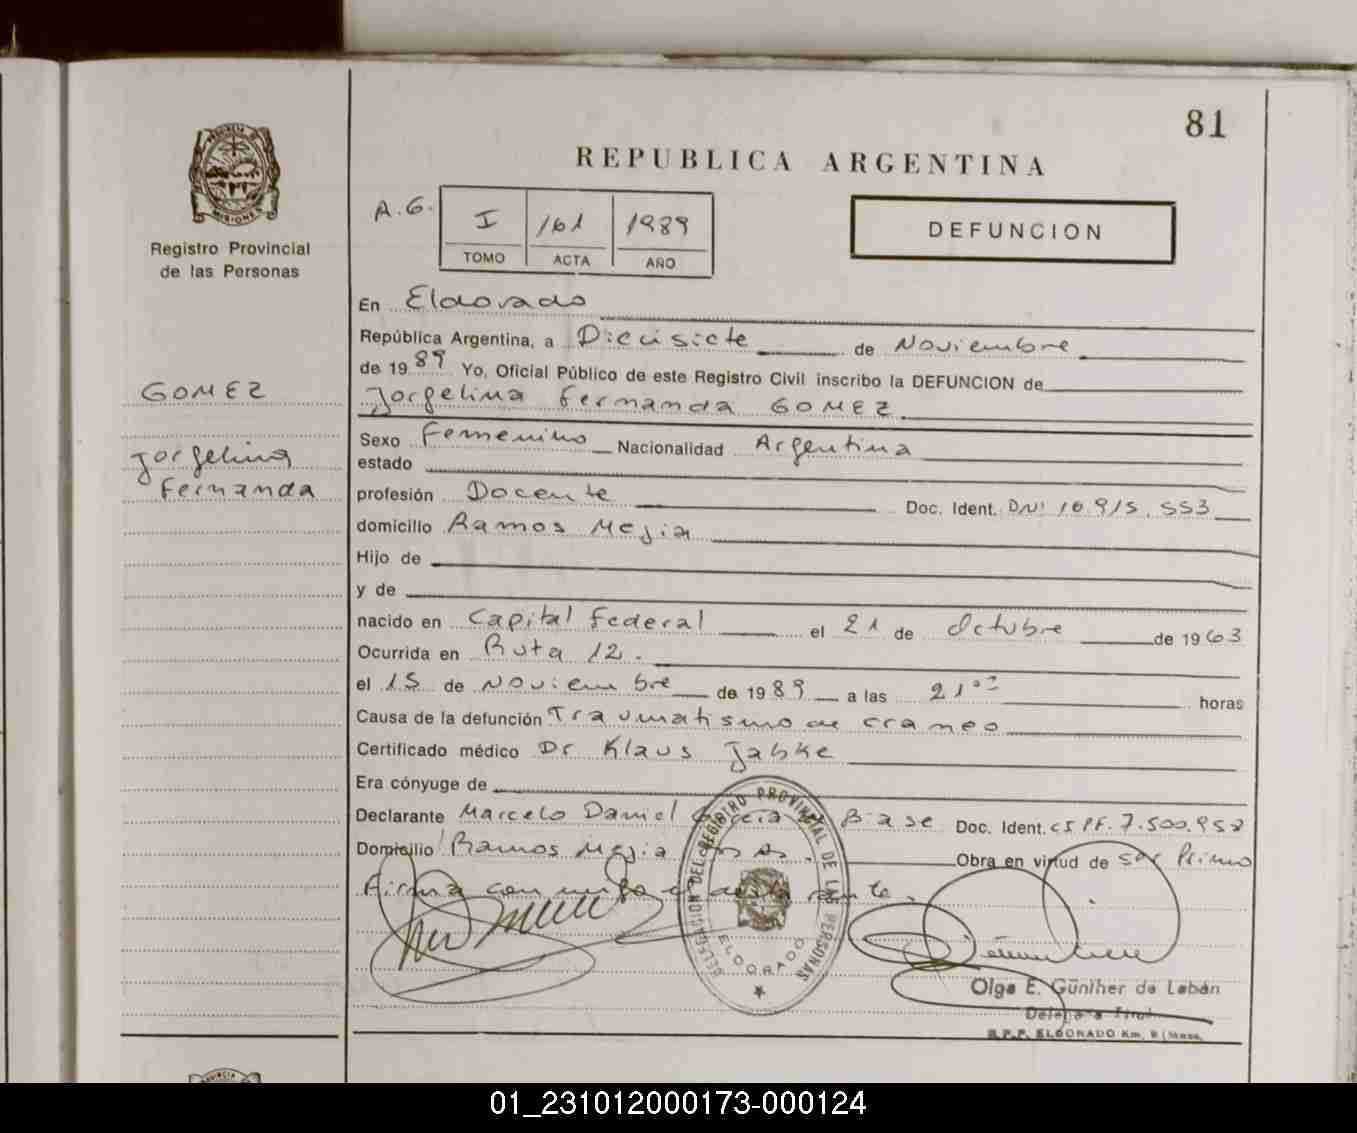 81
REPUBLICA ARGENTINA
PROVINCIA DE
MISIONES
Registro Provincial
de las Personas
A.G.
I 161 1989
TOMO ACTA AÑO
DEFUNCION
En Eldorado
República Argentina, a Diecisiete de Noviembre
de 1989 Yo, Oficial Público de este Registro Civil inscribo la DEFUNCION de
Jorgelina Fernanda GOMEZ
GOMEZ
Jorgelina
Fernanda
Sexo Femenino Nacionalidad Argentina
estado
profesión Docente Doc. Ident. DNI 16.915.553
domicilio Ramos Mejia
Hijo de
y de
nacido en Capital Federal el 21 de Octubre de 1963
Ocurrida en Ruta 12.
el 15 de Noviembre de 1989 a las 21 horas
Causa de la defunción Traumatismo de craneo
Certificado médico Dr Klaus Jabke
Era cónyuge de
Declarante Marcelo Daniel Biase Doc. Ident. 7.500.952
Domicilio Ramos Mejia Bs As. Obra en virtud de ser Primo
Firma conmigo el declarante.
DELEGACION DEL REGISTRO PROVINCIAL DE LAS PERSONAS
ELDORADO
Olga E. Günther de Labán
Delegada Titul
R.P.P. ELDORADO Km. 9 (Mnes.
01_231012000173-000124